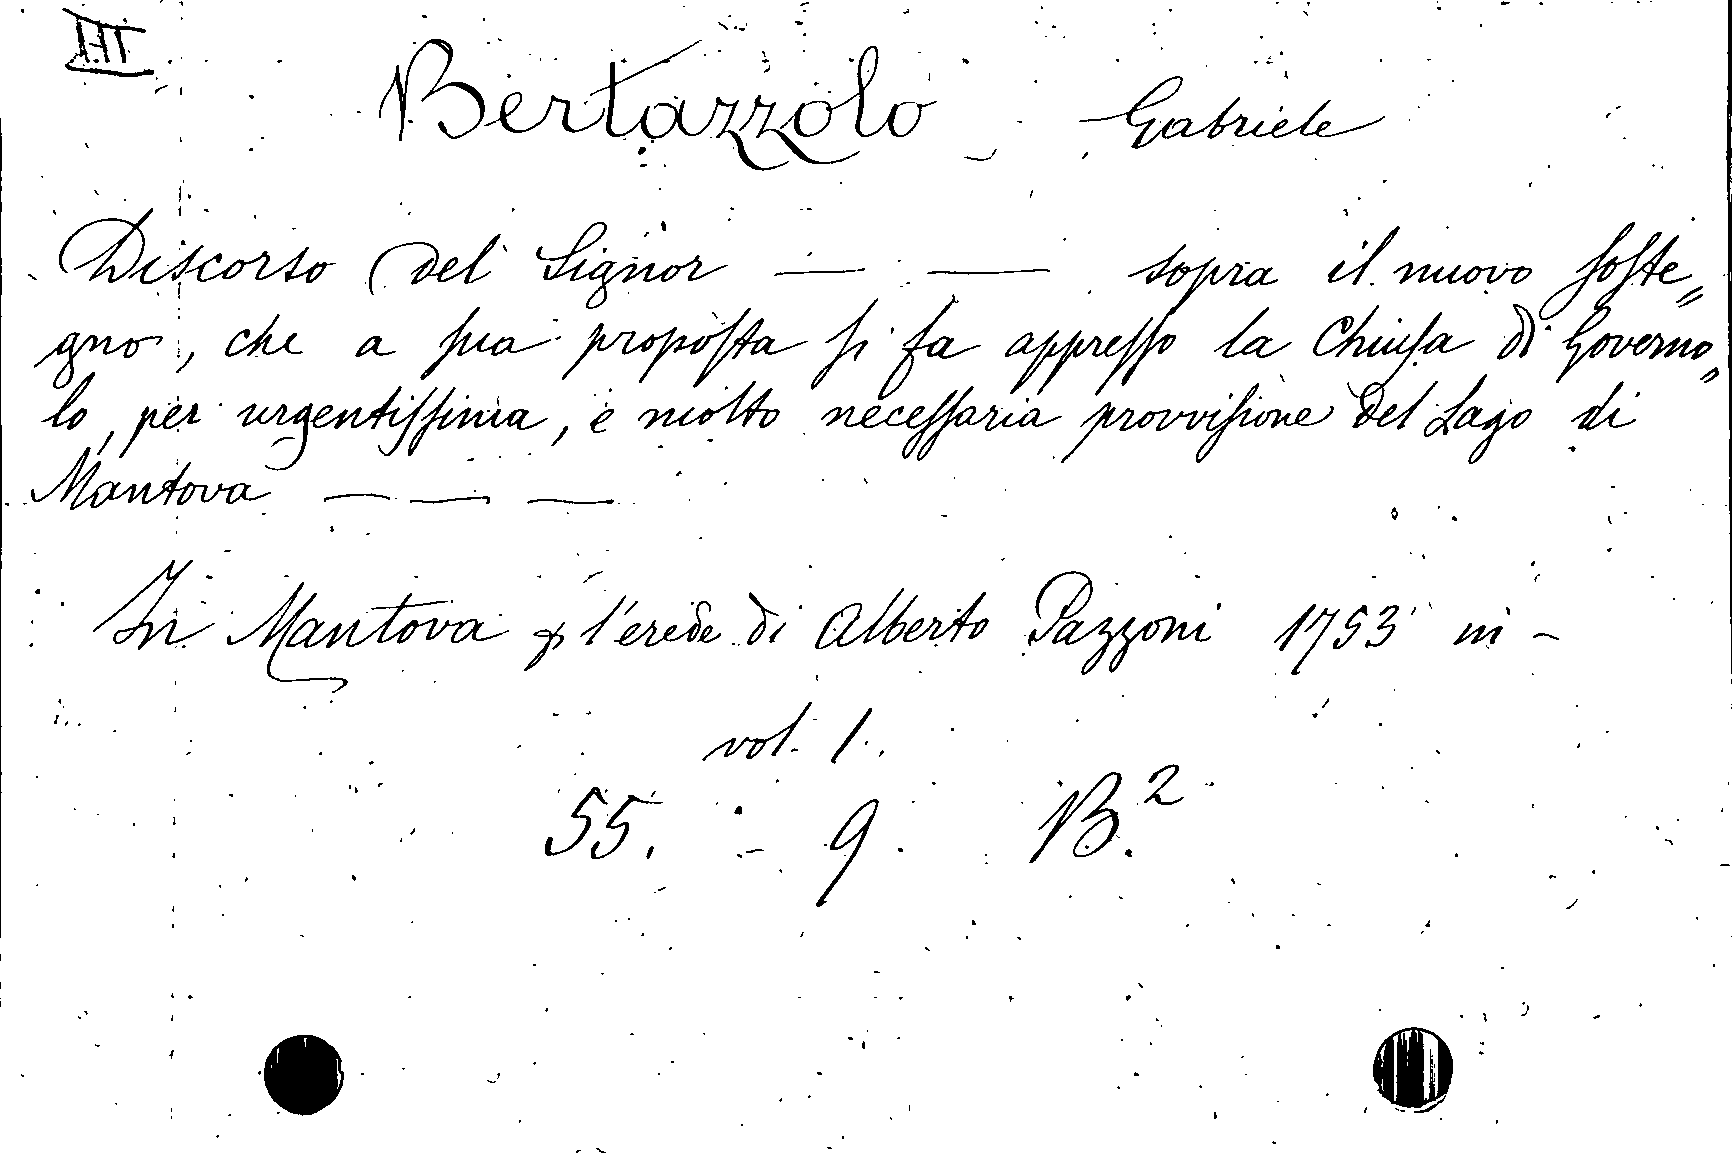 Bertazzolo Gabriele
Discorso del Signor — — sopra il nuovo soste„
gno, che a sua proposta si fa appresso la Chiusa di Governo„
lo, per urgentissima, e molto necessaria provvisione del Lago di
Mantova — — —
In Mantova p l'erede di Alberto Pazzoni 1753 in -
vol. 1.
55. - 9. B.²